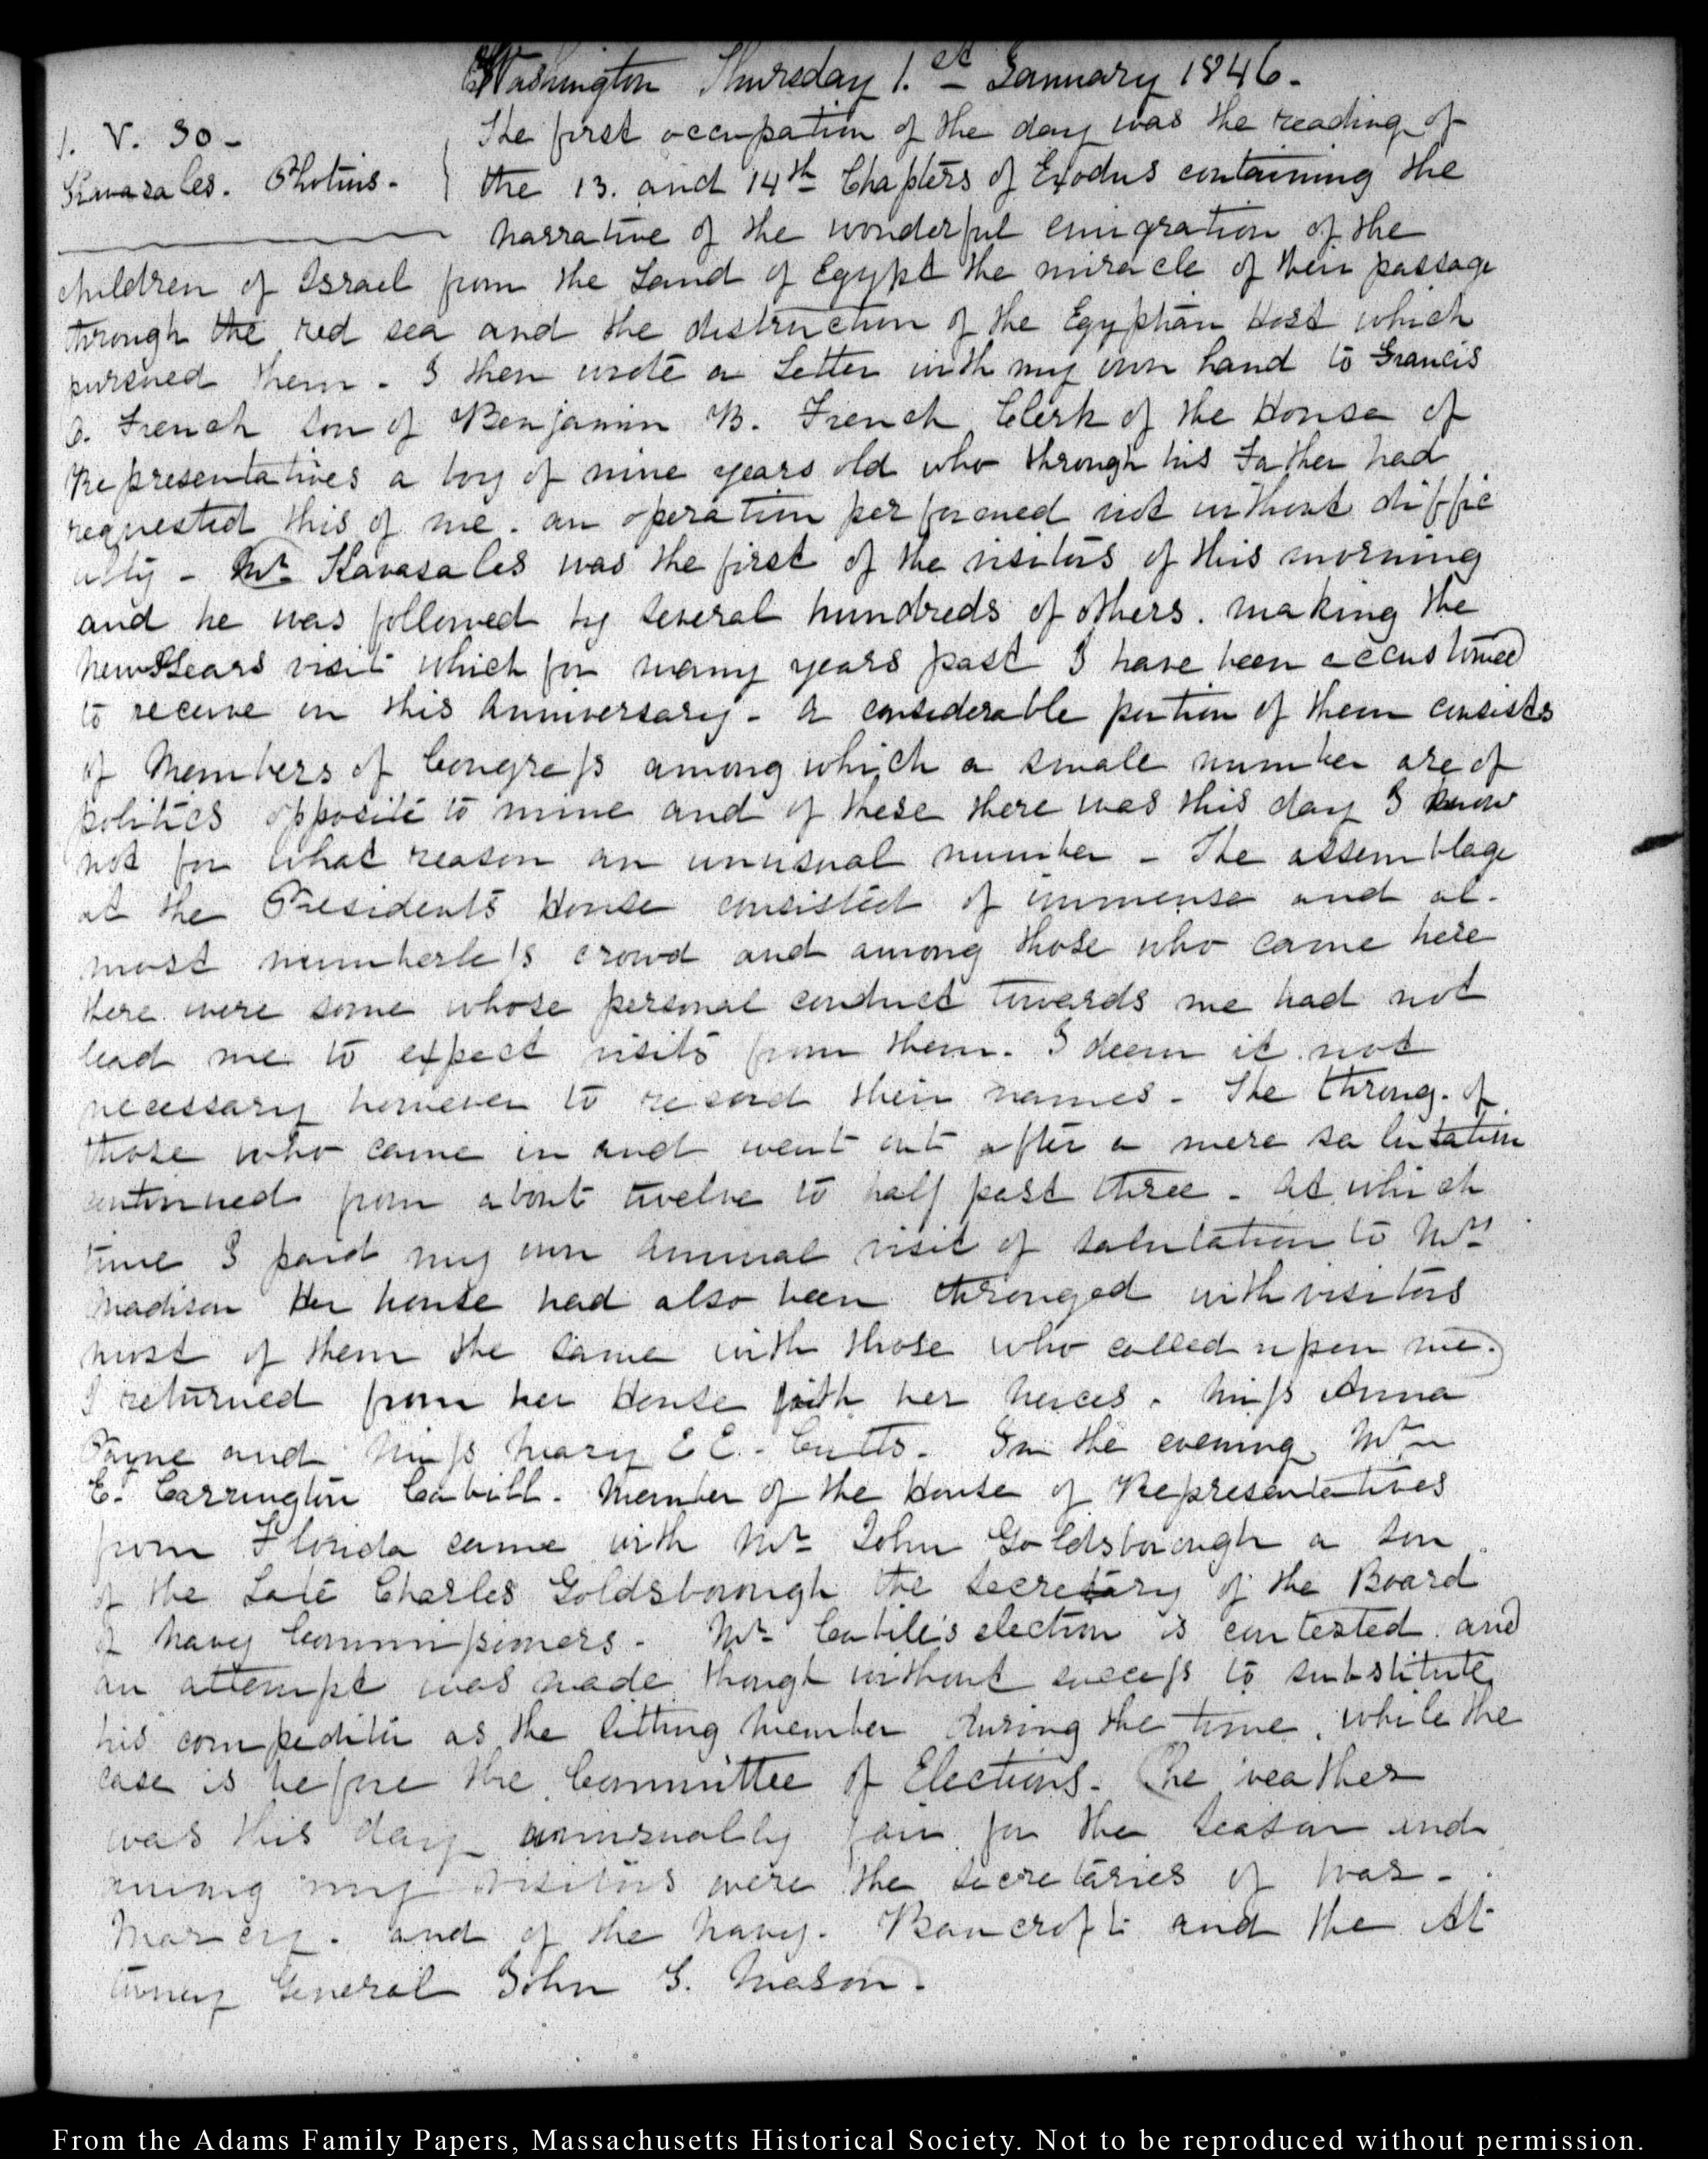 Washington Thursday 1.st January 1846.
1. V. 30 -
Kavasales. Photius.
The first occupation of the day was the reading of
the 13. and 14th Chapters of Exodus containing the
narrative of the wonderful emigration of the
children of Israel from the Land of Egypt the miracle of their passage
through the red sea and the distruction of the Egyptian Host which
pursued them. I then wrote a Letter with my own hand to Francis
O. French son of Benjamin B. French Clerk of the House of
Representatives a boy of nine years old who through his Father had
requested this of me. an operation performed not without diffic
ulty - Mr Kavasales was the first of the visitors of this morning
and he was followed by several hundreds of others. making the
New Years visit which for many years past I have been accustomed
to receive on this Anniversary - a considerable portion of them consists
of Members of Congress among which a small number are of
politics opposite to mine and of these there was this day I know
not for what reason an unusual number - The assemblage
at the Presidents House consisted of immense and al-
most numberless crowd and among those who came here
there were some whose personal conduct towards me had not
lead me to expect visits from them. I deem it not
necessary however to record their names - The throng. of
those who came in and went out after a mere salutation
continued from about twelve to half past three - at which
time I paid my own annual visit of salutation to Mrs
Madison Her house had also been thronged with visitors
most of them the same with those who called upon me.
I returned from her House with her neices. Miss Anna
Payne and Miss Mary E E. Cutts. In the evening Mr
E. Carrington Cabill. Member of the House of Representatives
from Florida came with Mr John Goldsborough a son
of the Late Charles Goldsborough the secretary of the Board
of Navy Commissioners. Mr Cabile's election is contested. and
an attempt was made though without success to substitute
his compeditor as the sitting Member during the time, while the
case is before the Committee of Elections. The weather
was this day unusually fair for the season and
among my visitors were the secretaries of War -
Marcy. and of the Navy. Bancroft and the At
torney General John Y. Mason.
From the Adams Family Papers, Massachusetts Historical Society. Not to be reproduced without permission.